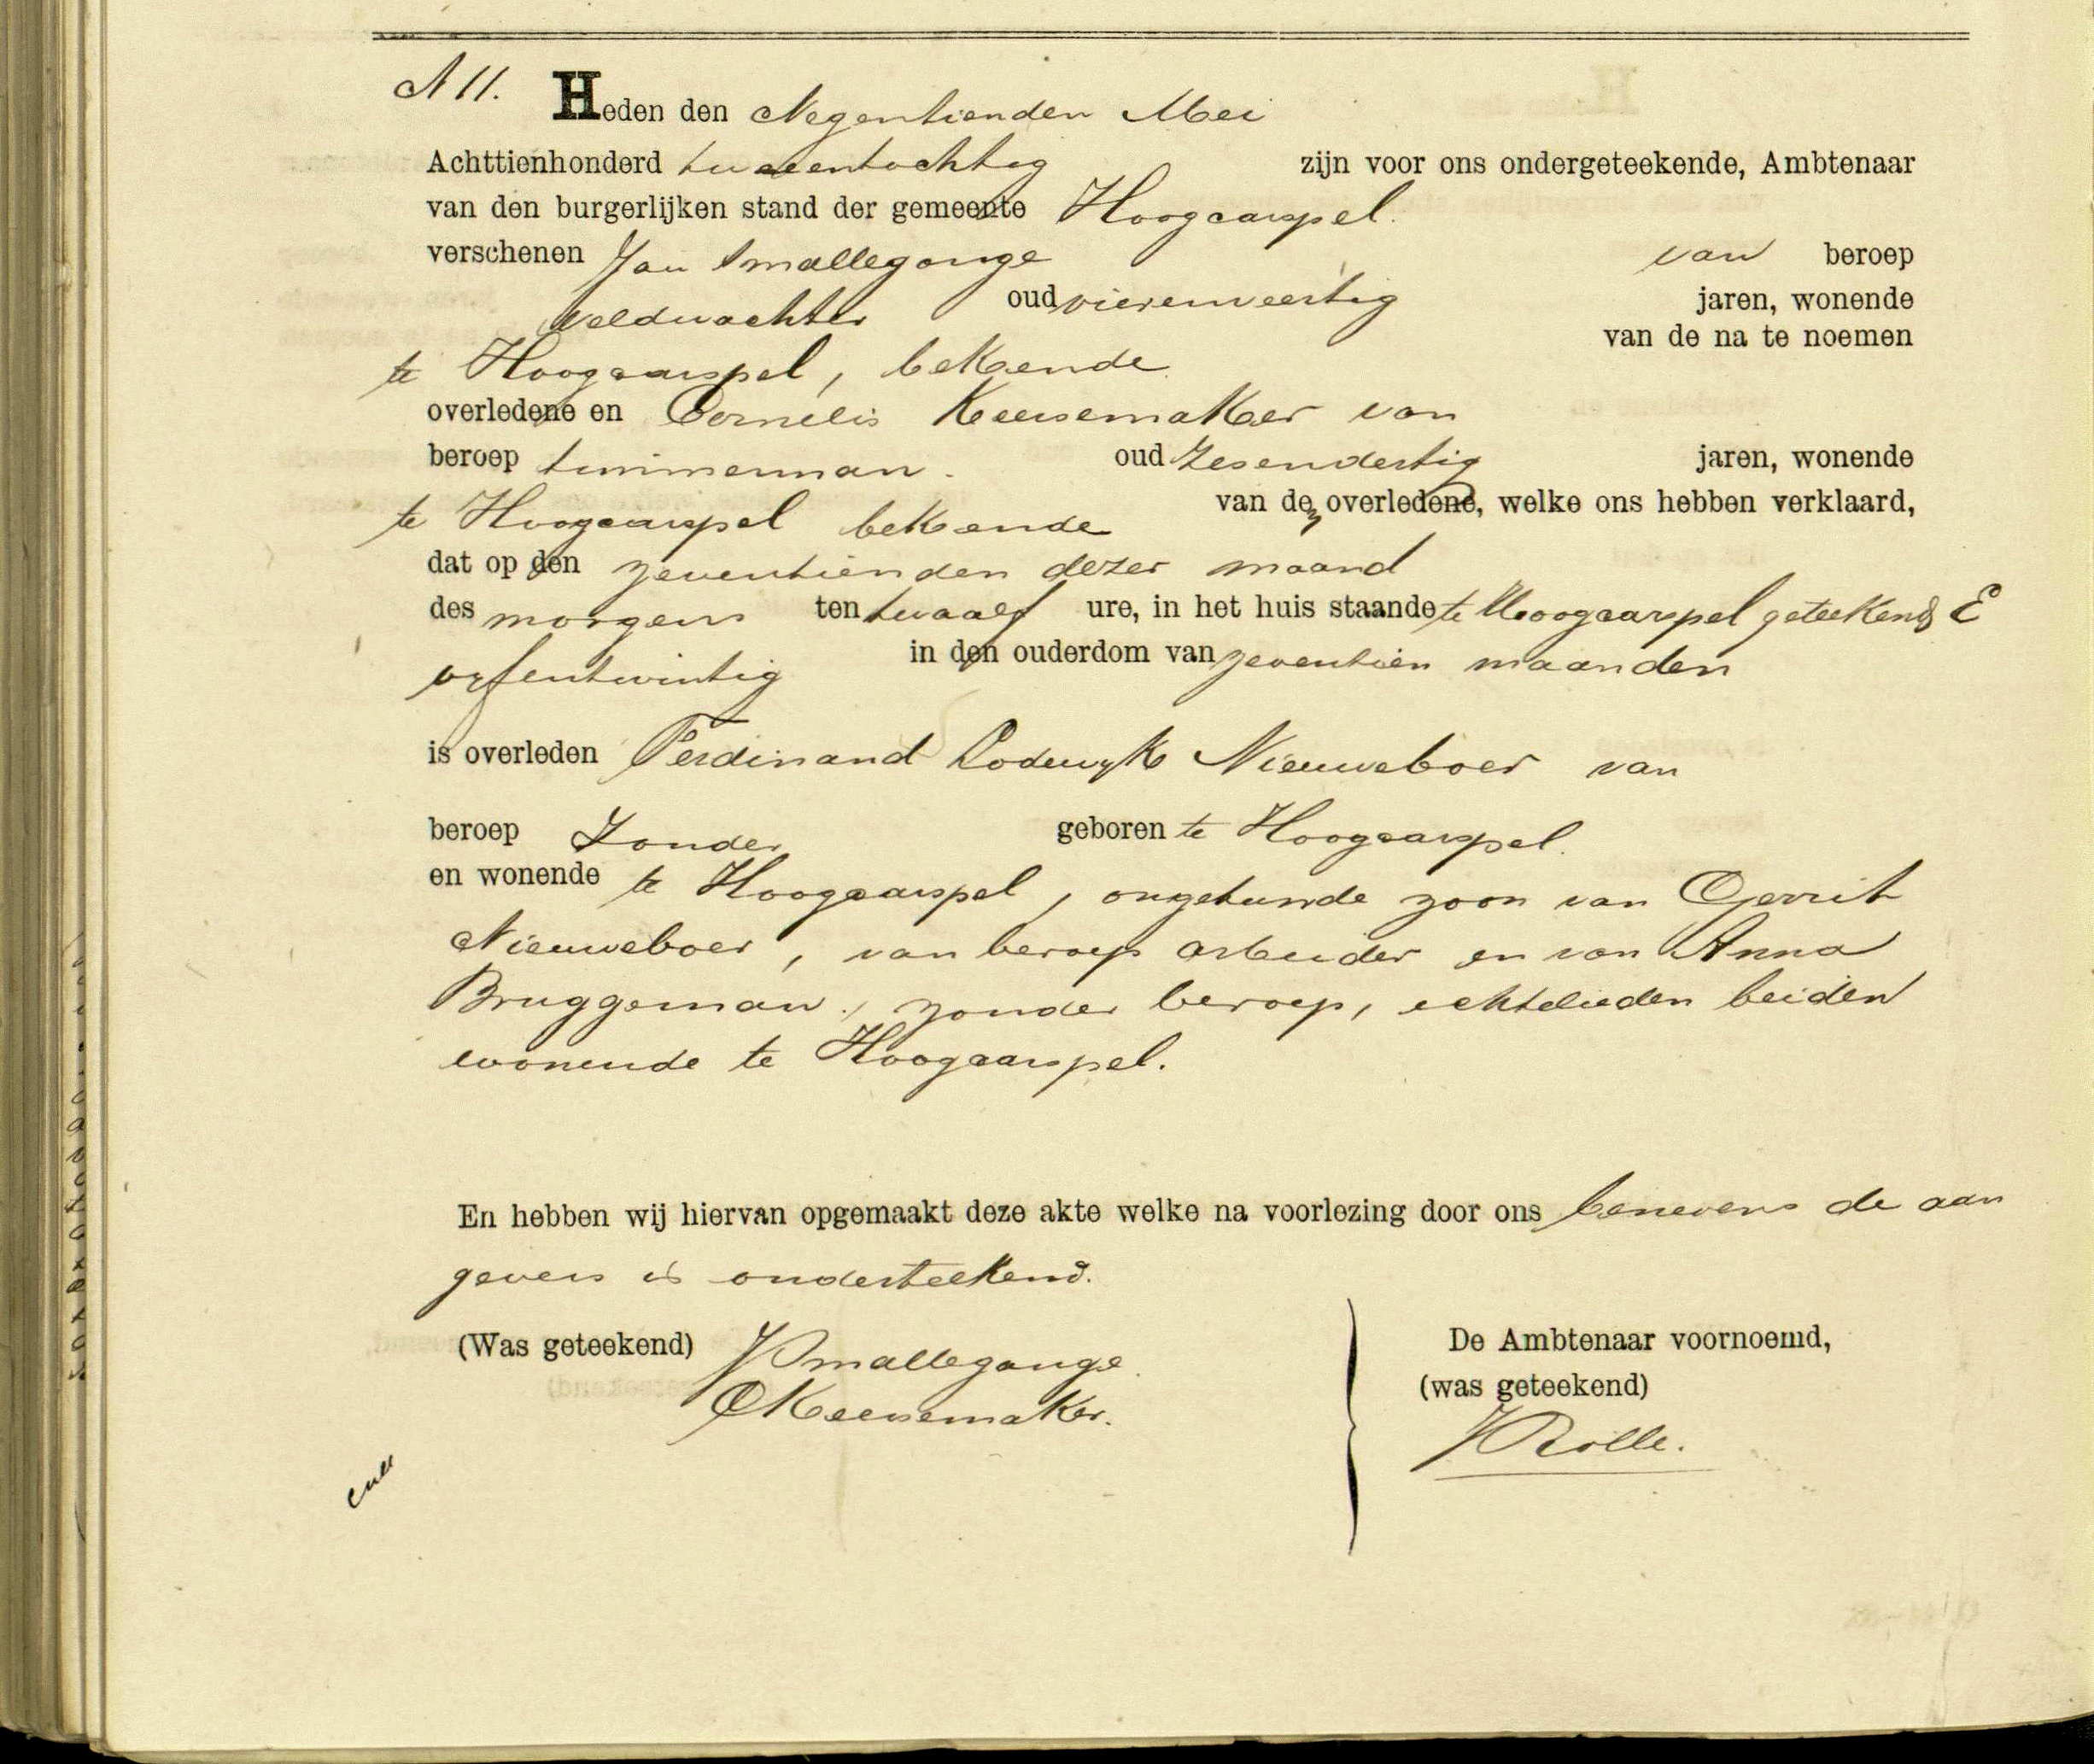 N 11. Heden den Negentienden Mei
Achttienhonderd tweeentachtig zijn voor ons ondergeteekende, Ambtenaar
van den burgerlijken stand der gemeente Hoogcarspel.
verschenen Jan Smallegange van beroep
veldwachter oud vierenveertig jaren, wonende
van de na te noemen
te Hoogcarspel, bekende
overledene en Cornelis Keesemaker van
beroep timmerman. oud zesendertig jaren, wonende
te Hoogcarspel bekende van den overledene, welke ons hebben verklaard,
dat op den zeventienden dezer maand
des morgens ten twaalf ure, in het huis staande te Hoogcarspel geteekend E
vyfentwintig in den ouderdom van zeventien maanden
is overleden Ferdinand Lodewyk Nieuweboer van
beroep Zonder geboren te Hoogcarspel.
en wonende te Hoogcarspel, ongehuwde zoon van Gerrit
Nieuweboer, van beroep arbeider en van Anna
Bruggeman, zonder beroep, echtelieden beiden
wonende te Hoogcarspel.
En hebben wij hiervan opgemaakt deze akte welke na voorlezing door ons benevens de aan
gevers is onderteekend.
(Was geteekend) J Smallegange. De Ambtenaar voornoemd,
C Keesemaker. (was geteekend)
J Rolle.